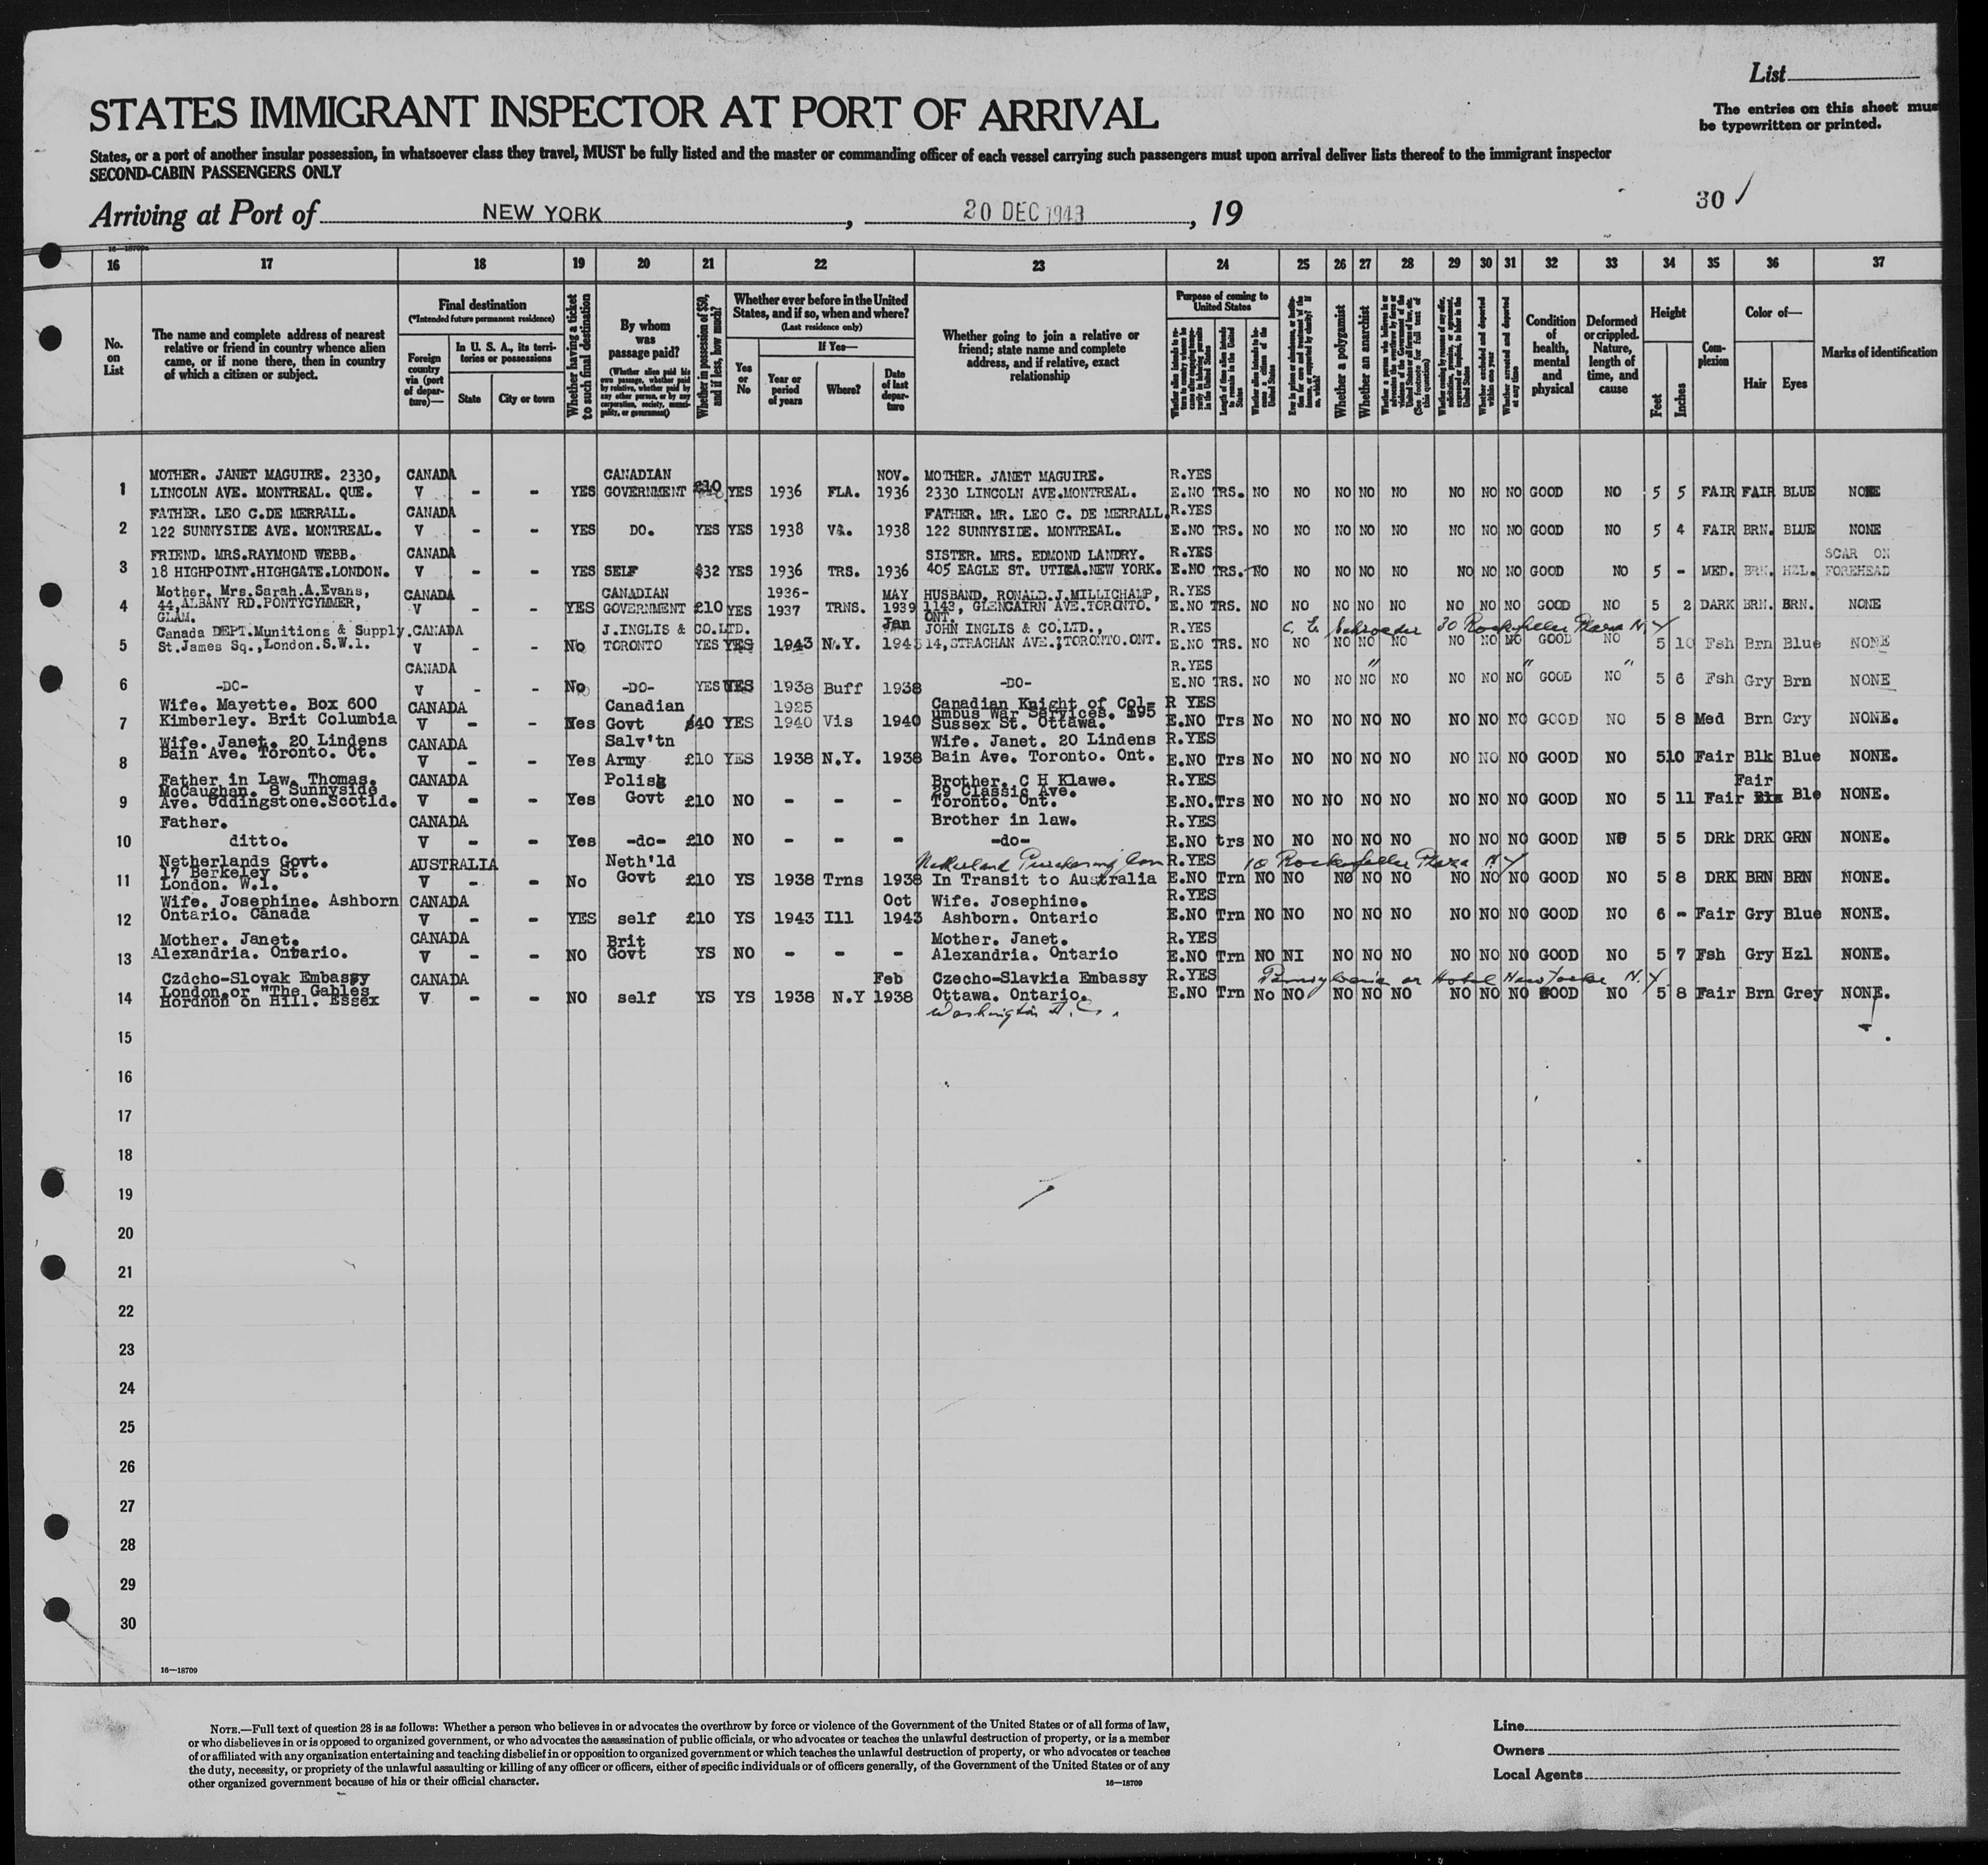 List
The entries on this sheet mus
be typewritten or printed.
STATES IMMIGRANT INSPECTOR AT PORT OF ARRIVAL
States, or a port of another insular possession, in whatsoever class they travel, MUST be fully listed and the master or commanding officer of each vessel carrying such passengers must upon arrival deliver lists thereof to the immigrant inspector
SECOND-CABIN PASSENGERS ONLY
Arriving at Port of NEW YORK, 20 DEC 1943, 19
30 ✓
16 17 18 19 20 21 22 23 24 25 26 27 28 29 30 31 32 33 34 35 36 37
No. on List
The name and complete address of nearest relative or friend in country whence alien came, or if none there, then in country of which a citizen or subject.
Final destination
(*Intended future permanent residence)
Foreign country via (port of departure)—
In U. S. A., its territories or possessions
State
City or town
Whether having a ticket to such final destination
By whom was passage paid?
(Whether alien paid his own passage, whether paid by relative, whether paid by any other person, or by any corporation, society, municipality, or government)
Whether in possession of $50, and if less, how much?
Whether ever before in the United States, and if so, when and where?
(Last residence only)
If Yes—
Yes or No
Year or period of years
Where?
Date of last departure
Whether going to join a relative or friend; state name and complete address, and if relative, exact relationship
Purpose of coming to United States
Length of time alien intends to remain in the United States
Whether a polygamist
Whether an anarchist
Whether arrested and deported at any time
Condition of health, mental and physical
Deformed or crippled. Nature, length of time, and cause
Height
Feet
Inches
Complexion
Color of—
Hair
Eyes
Marks of identification
MOTHER. JANET MAGUIRE. 2330, CANADA CANADIAN NOV. MOTHER. JANET MAGUIRE. R.YES
1 LINCOLN AVE. MONTREAL. QUE. V - - YES GOVERNMENT £10 YES 1936 FLA. 1936 2330 LINCOLN AVE.MONTREAL. E.NO TRS. NO NO NO NO NO NO NO NO GOOD NO 5 5 FAIR FAIR BLUE NONE
FATHER. LEO C.DE MERRALL. CANADA FATHER. MR. LEO C. DE MERRALL. R.YES
2 122 SUNNYSIDE AVE. MONTREAL. V - - YES DO. YES YES 1938 VA. 1938 122 SUNNYSIDE. MONTREAL. E.NO TRS. NO NO NO NO NO NO NO NO GOOD NO 5 4 FAIR BRN. BLUE NONE
FRIEND. MRS.RAYMOND WEBB. CANADA SISTER. MRS. EDMOND LANDRY. R.YES SCAR ON
3 18 HIGHPOINT.HIGHGATE.LONDON. V - - YES SELF $32 YES 1936 TRS. 1936 405 EAGLE ST. UTICA.NEW YORK. E.NO TRS. NO NO NO NO NO NO NO NO GOOD NO 5 - MED. BRN. HZL. FOREHEAD
Mother. Mrs.Sarah.A.Evans, CANADA CANADIAN 1936- MAY HUSBAND. RONALD.J.MILLICHAMP, R.YES
4 44,ALBANY RD.PONTYCYMMER, V - - YES GOVERNMENT £10 YES 1937 TRNS. 1939 1143, GLENCAIRN AVE.TORONTO. E.NO TRS. NO NO NO NO NO NO NO NO GOOD NO 5 2 DARK BRN. BRN. NONE
GLAM. ONT.
Canada DEPT.Munitions & Supply. CANADA J.INGLIS & CO.LTD. Jan JOHN INGLIS & CO.LTD., R.YES C. E. Schroeder 30 Rockefeller Plaza N.Y
5 St.James Sq.,London.S.W.1. V - - No TORONTO YES YES 1943 N.Y. 1943 14,STRACHAN AVE.;TORONTO.ONT. E.NO TRS. NO NO NO NO NO NO NO NO GOOD NO 5 10 Fsh Brn Blue NONE
CANADA R.YES " " "
6 -DO- V - - No -DO- YES YES 1938 Buff 1938 -DO- E.NO TRS. NO NO NO NO NO NO NO NO GOOD NO 5 6 Fsh Gry Brn NONE
Wife. Mayette. Box 600 CANADA Canadian 1925 Canadian Knight of Col- R YES
7 Kimberley. Brit Columbia V - - Yes Govt $40 YES 1940 Vis 1940 umbus War Services. 195 E.NO Trs No NO NO NO NO NO NO NO GOOD NO 5 8 Med Brn Gry NONE.
Sussex St. Ottawa.
Wife. Janet. 20 Lindens CANADA Salv'tn Wife. Janet. 20 Lindens R.YES
8 Bain Ave. Toronto. Ot. V - - Yes Army £10 YES 1938 N.Y. 1938 Bain Ave. Toronto. Ont. E.NO Trs No NO NO NO NO NO NO NO GOOD NO 510 Fair Blk Blue NONE.
Father in Law. Thomas. CANADA Polish Brother. C H Klawe. R.YES Fair
McCaughan. 8 Sunnyside 29 Classic Ave.
9 Ave. Uddingstone.Scotld. V - - Yes Govt £10 NO - - - Toronto. Ont. E.NO. Trs NO NO NO NO NO NO NO NO GOOD NO 5 11 Fair Blx Ble NONE.
Father. CANADA Brother in law. R.YES
10 ditto. V - - Yes -do- £10 NO - - - -do- E.NO trs NO NO NO NO NO NO NO NO GOOD NO 5 5 DRk DRK GRN NONE.
Netherlands Govt. AUSTRALIA Neth'ld Netherland Purchasing Com R.YES 10 Rockefeller Plaza N.Y
17 Berkeley St.
11 London. W.1. V - - No Govt £10 YS 1938 Trns 1938 In Transit to Australia E.NO Trn NO NO NO NO NO NO NO NO GOOD NO 5 8 DRK BRN BRN NONE.
Wife. Josephine. Ashborn CANADA Oct Wife. Josephine. R.YES
12 Ontario. Canada V - - YES self £10 YS 1943 Ill 1943 Ashborn. Ontario E.NO Trn NO NO NO NO NO NO NO NO GOOD NO 6 - Fair Gry Blue NONE.
Mother. Janet. CANADA Brit Mother. Janet. R.YES
13 Alexandria. Ontario. V - - NO Govt YS NO - - - Alexandria. Ontario E.NO Trn NO NI NO NO NO NO NO NO GOOD NO 5 7 Fsh Gry Hzl NONE.
Czdcho-Slovak Embassy CANADA Feb Czecho-Slavkia Embassy R.YES Pennsylvania or Hotel New Yorker N.Y.
London or "The Gables
14 Hordnon on Hill. Essex V - - NO self YS YS 1938 N.Y 1938 Ottawa. Ontario. E.NO Trn No NO NO NO NO NO NO NO GOOD NO 5 8 Fair Brn Grey NONE.
Washington D.C.
15
16
17
18
19
20
21
22
23
24
25
26
27
28
29
30
16—18709
NOTE.—Full text of question 28 is as follows: Whether a person who believes in or advocates the overthrow by force or violence of the Government of the United States or of all forms of law,
or who disbelieves in or is opposed to organized government, or who advocates the assassination of public officials, or who advocates or teaches the unlawful destruction of property, or is a member
of or affiliated with any organization entertaining and teaching disbelief in or opposition to organized government or which teaches the unlawful destruction of property, or who advocates or teaches
the duty, necessity, or propriety of the unlawful assaulting or killing of any officer or officers, either of specific individuals or of officers generally, of the Government of the United States or of any
other organized government because of his or their official character.
16—18709
Line
Owners
Local Agents